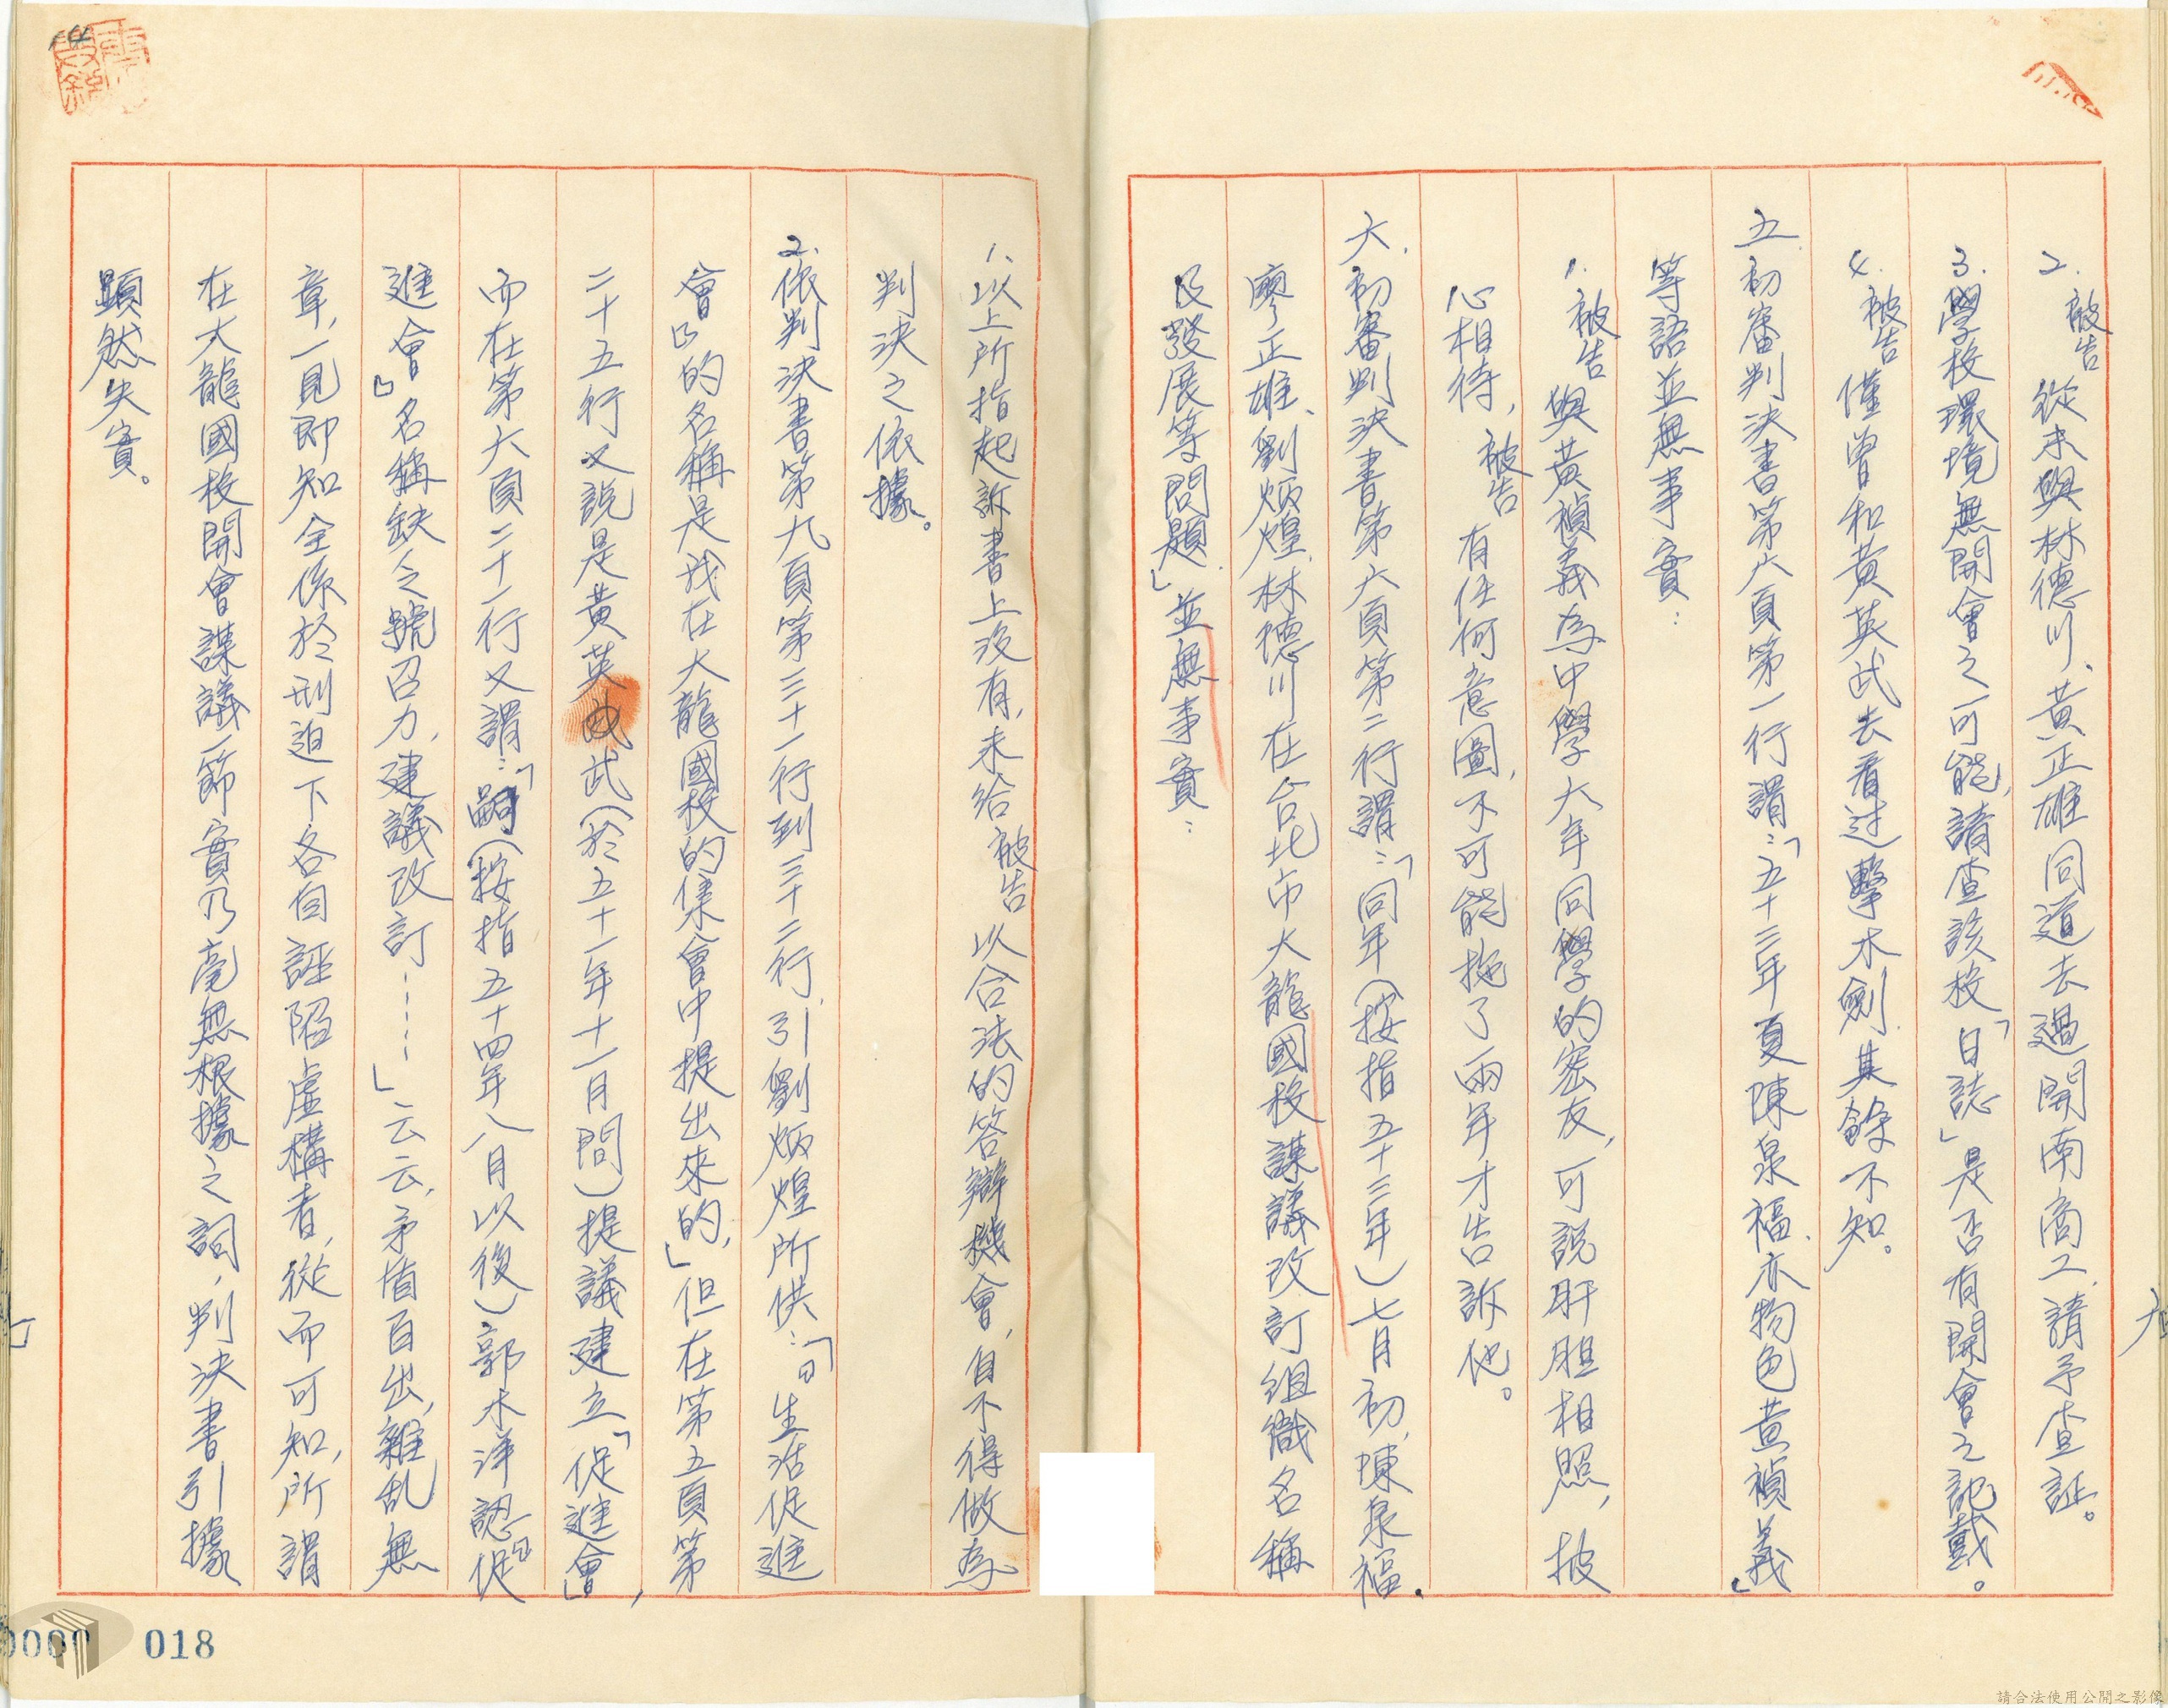 2. 被告從未與林德川、黃正雄同道去過開南商工,請予查証。
3. 學校環境無開會之可能,請查該校「日誌」是否有開會之記載。
4. 被告僅曾和黃英武去看过擊木劍,其餘不知。
五.初審判決書第六頁第一行謂:「五十三年夏陳泉福,亦物色黃禎義」
等語並無事實:
1. 被告與黃禎義為中學六年同學的密友,可說肝胆相照,披
心相待,被告有任何意圖,不可能拖了兩年才告訴他。
六.初審判決書第六頁第二行謂:「同年(按指五十三年)七月初,陳泉福.
廖正雄、劉炳煌.林德川在台北市大龍國校謀議改訂組織名稱
及發展等問題」並無事實:
1. 以上所指起訴書上沒有,未給被告以合法的答辯機會,自不得做為
判決之依據。
2. 依判決書第九頁第三十一行到三十二行,引劉炳煌所供:「『生活促進
會』的名稱是我在大龍國校的集會中提出來的,」但在第五頁第
二十五行又說是黃英武(於五十一年十一月間)提議建立「促進會」,
而在第六頁二十一行又謂:「嗣(按指五十四年八月以後)郭木洋認『促
進會』名稱缺人之號召力,建議改訂……」云云,矛盾百出,雜乱無
章,一見即知全係於刑迫下各自誣陷虛構者,從而可知,所謂
在大龍國校開會謀議一節實乃毫無根據之詞,判決書引據
顯然失實。
018
請合法使用公開之影像